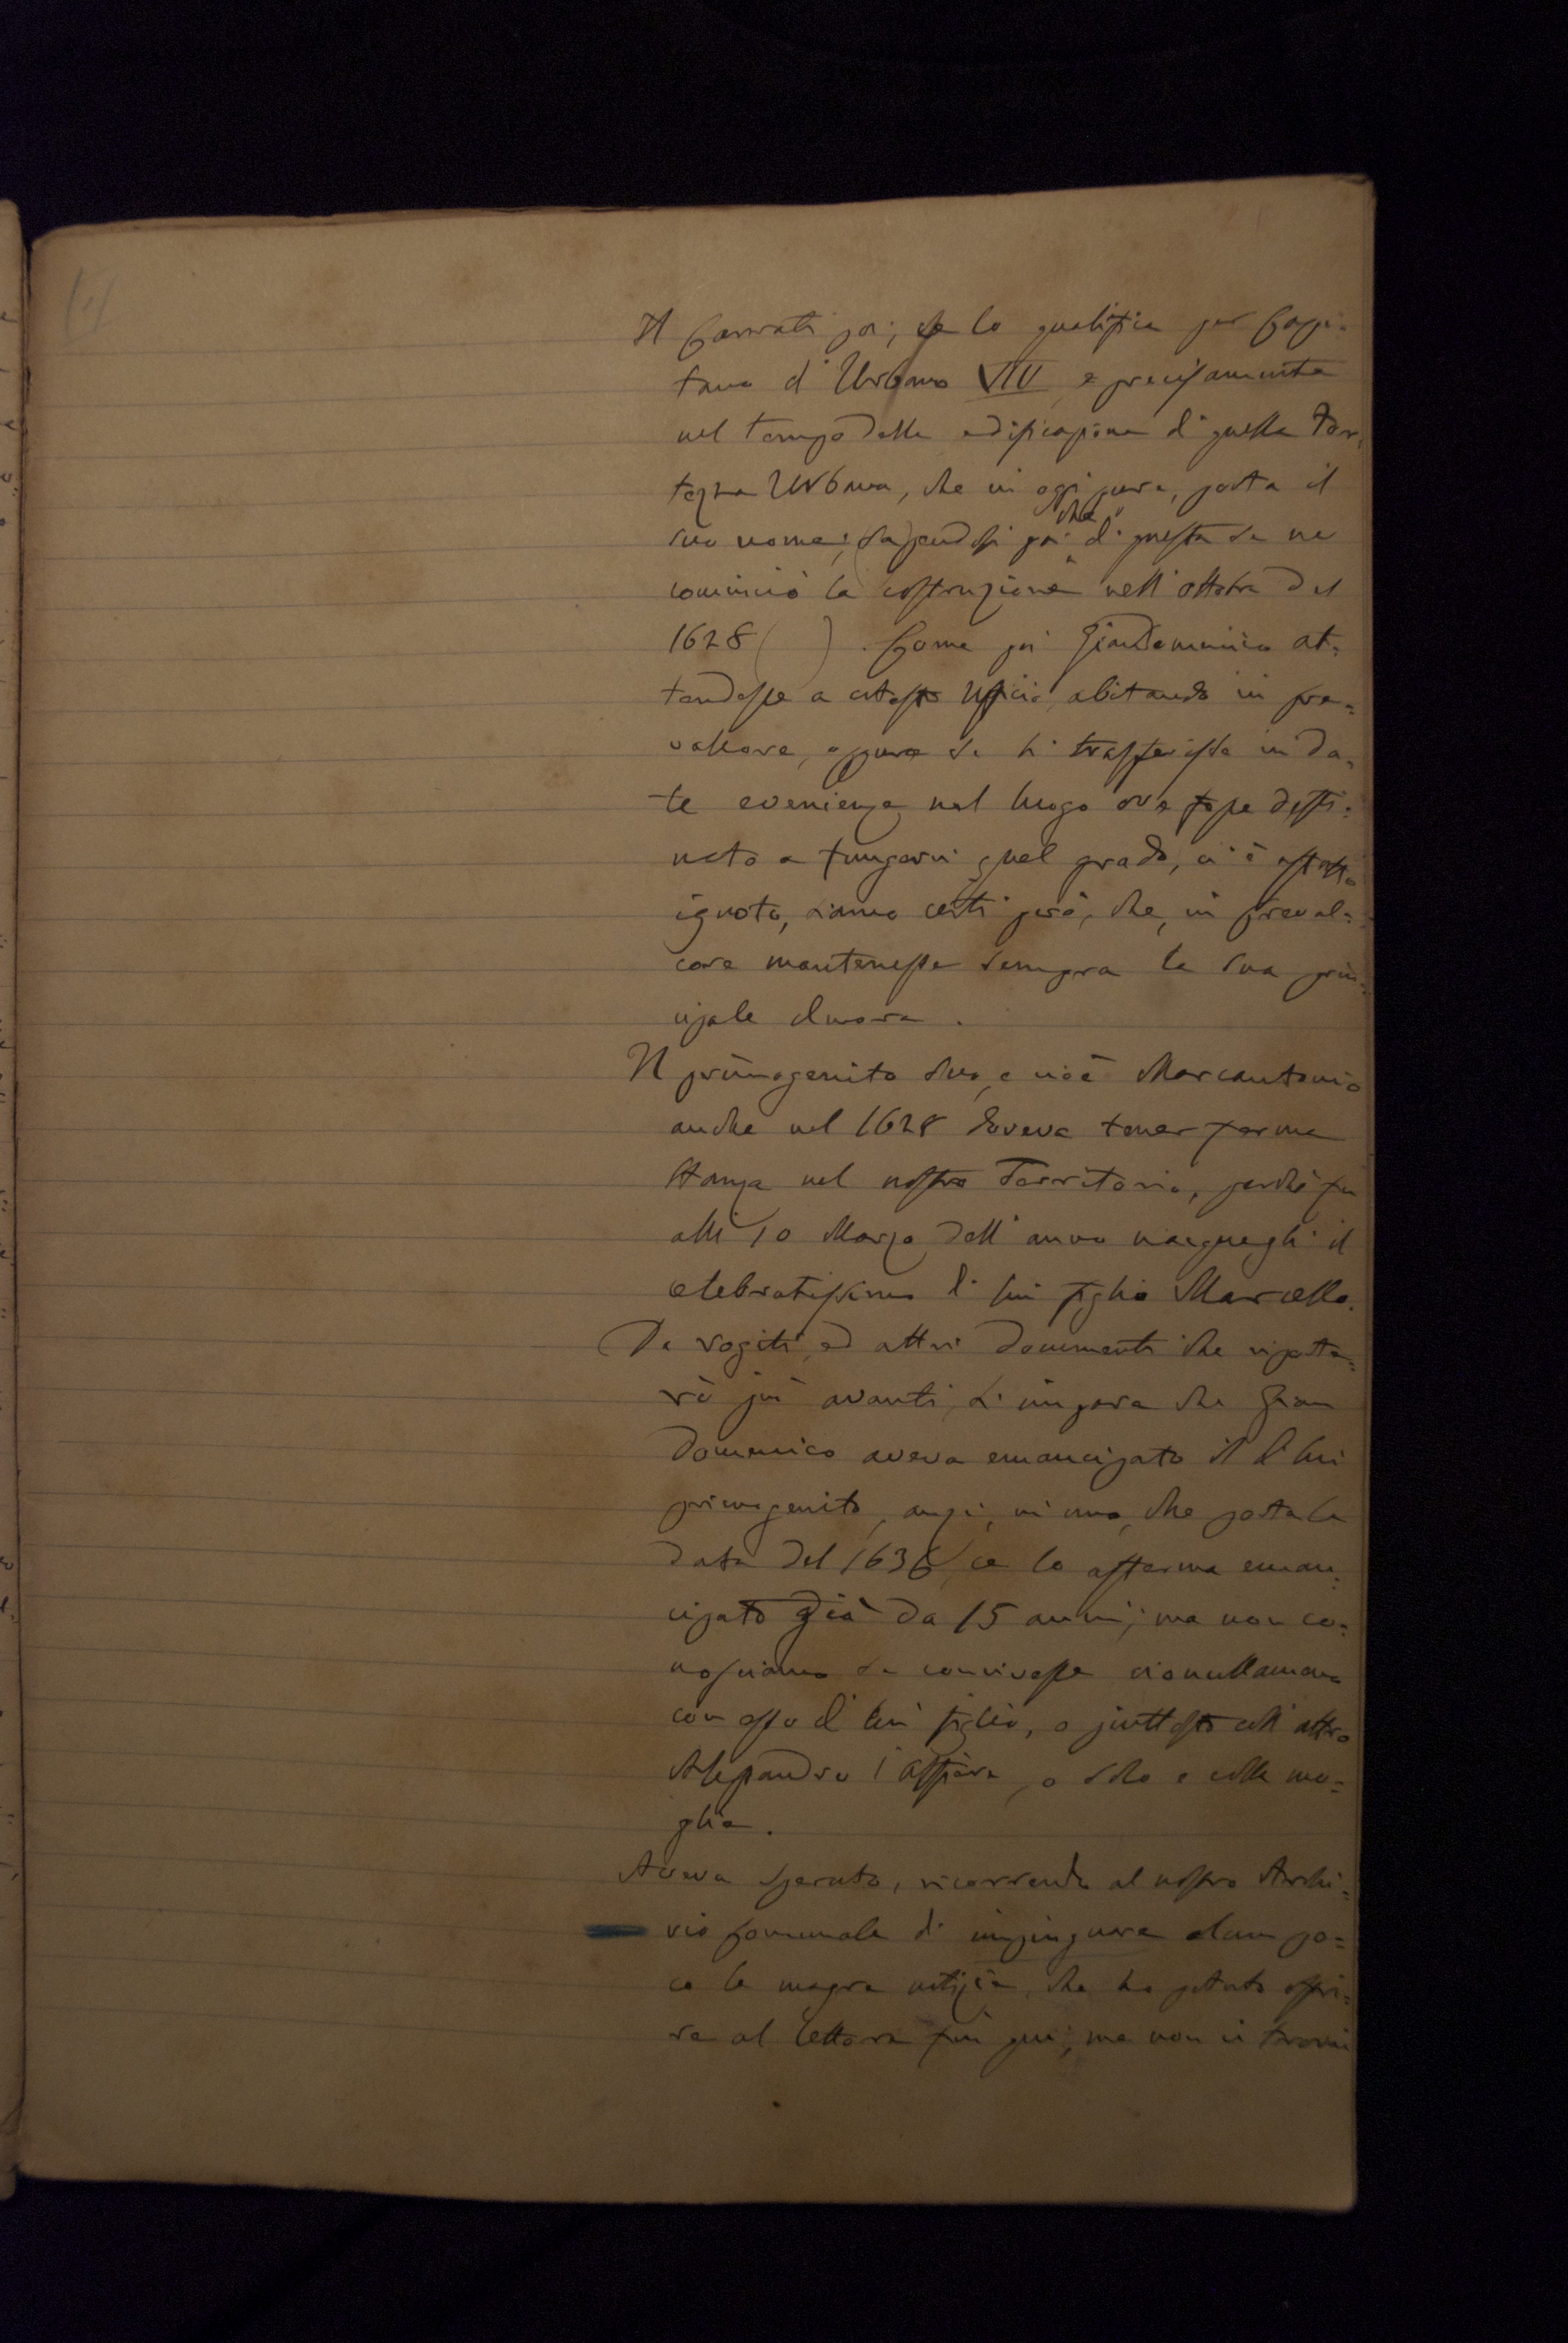 Il Carrati poi, ce lo qualifica per Cappi=
tano d'Urbano VIII e precisamente
nel tempo della edificazione di quella For,
tezza Urbana, che in oggi pure, porta il
suo nome; (sapendosi poi che di questa se ne
cominciò la costruzione nell'ottobre del
1628 ( ). Come poi Giandomenico at=
tendesse a cotesto Ufficio, abitando in Cre=
valcore, oppure se si trasferisse in da=
te evenienze nel luogo ove fosse desti=
nato a fungervi quel grado, ci è affatto
ignoto, siamo certi però, che, in Creval=
core mantenesse sempre la sua prin=
cipale dimora.
Il primogenito suo, e cioè Marcantonio
anche nel 1628 doveva tener ferma
stanza nel nostro Territorio, perché fu
alli 10 Marzo dell'anno nacquegli il
celebratissimo di lui figlio Marcello.
Da rogiti, ed altri documenti che riporte=
rò più avanti, si impara che Gian
Domenico aveva emancipato il di lui
primogenito, anzi, in uno, che porta la
data del 1636, ce lo afferma eman=
cipato già da 15 anni; ma non co=
nosciamo se convivesse cionullameno
con esso di lui figlio, o piuttosto coll'altro
Alessandro l'Alfiere, o solo e colla mo=
glie.
Aveva sperato, ricorrendo al nostro Archi=
vio Comunale di impinguare alcun po=
co le magre notizie, che ho potuto offri=
re al lettore fin qui; ma non ci trovai